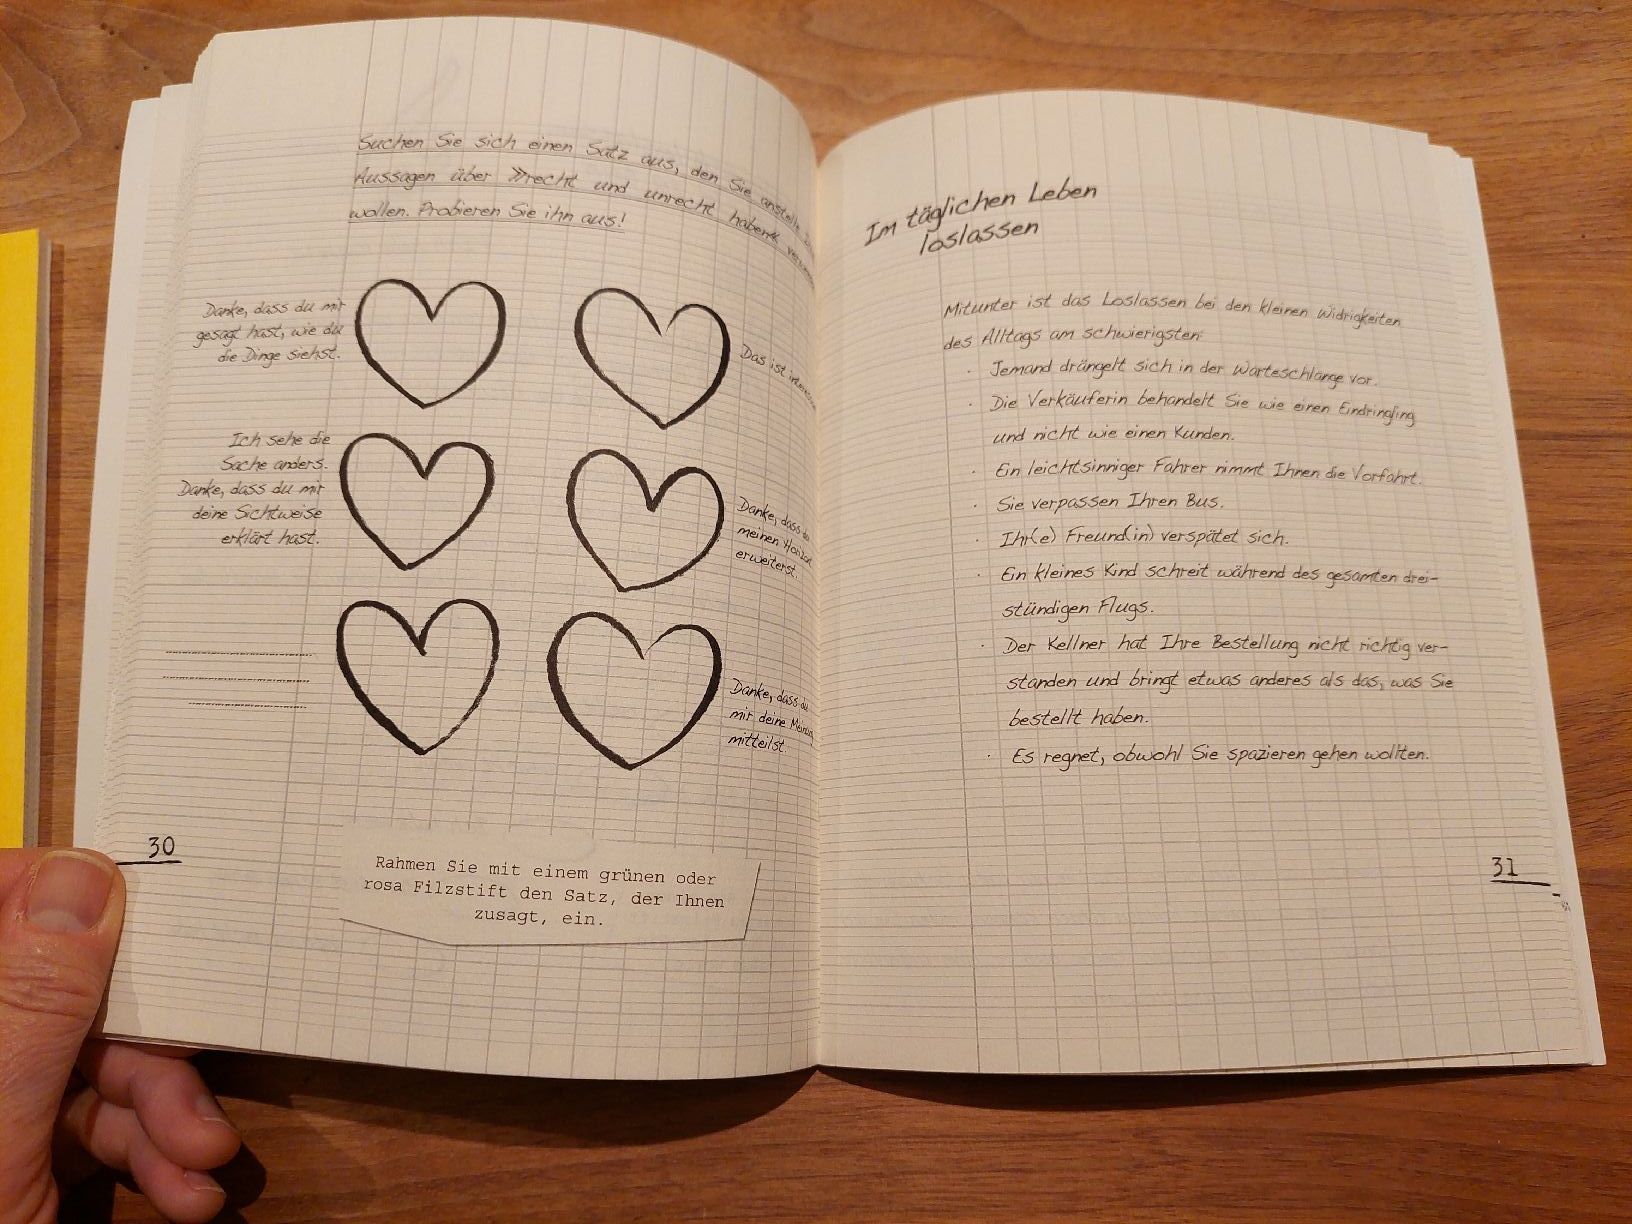 Suchen Sie sich einen Satz aus, den Sie anstelle
Aussagen über »recht und unrecht haben«
wollen. Probieren Sie ihn aus!
Danke, dass du mir
gesagt hast, wie du
die Dinge siehst.
Das ist
Ich sehe die
Sache anders.
Danke, dass du mir
deine Sichtweise
erklärt hast.
Danke, dass du
meinen
erweiterst.
Danke, dass du
mir deine
mitteilst.
Rahmen Sie mit einem grünen oder
rosa Filzstift den Satz, der Ihnen
zusagt, ein.
30
Im täglichen Leben
loslassen
Mitunter ist das Loslassen bei den kleinen Widrigkeiten
des Alltags am schwierigsten:
· Jemand drängelt sich in der Warteschlange vor.
· Die Verkäuferin behandelt Sie wie einen Eindringling
und nicht wie einen Kunden.
· Ein leichtsinniger Fahrer nimmt Ihnen die Vorfahrt.
· Sie verpassen Ihren Bus.
· Ihr(e) Freund(in) verspätet sich.
· Ein kleines Kind schreit während des gesamten drei-
stündigen Flugs.
· Der Kellner hat Ihre Bestellung nicht richtig ver-
standen und bringt etwas anderes als das, was Sie
bestellt haben.
· Es regnet, obwohl Sie spazieren gehen wollten.
31